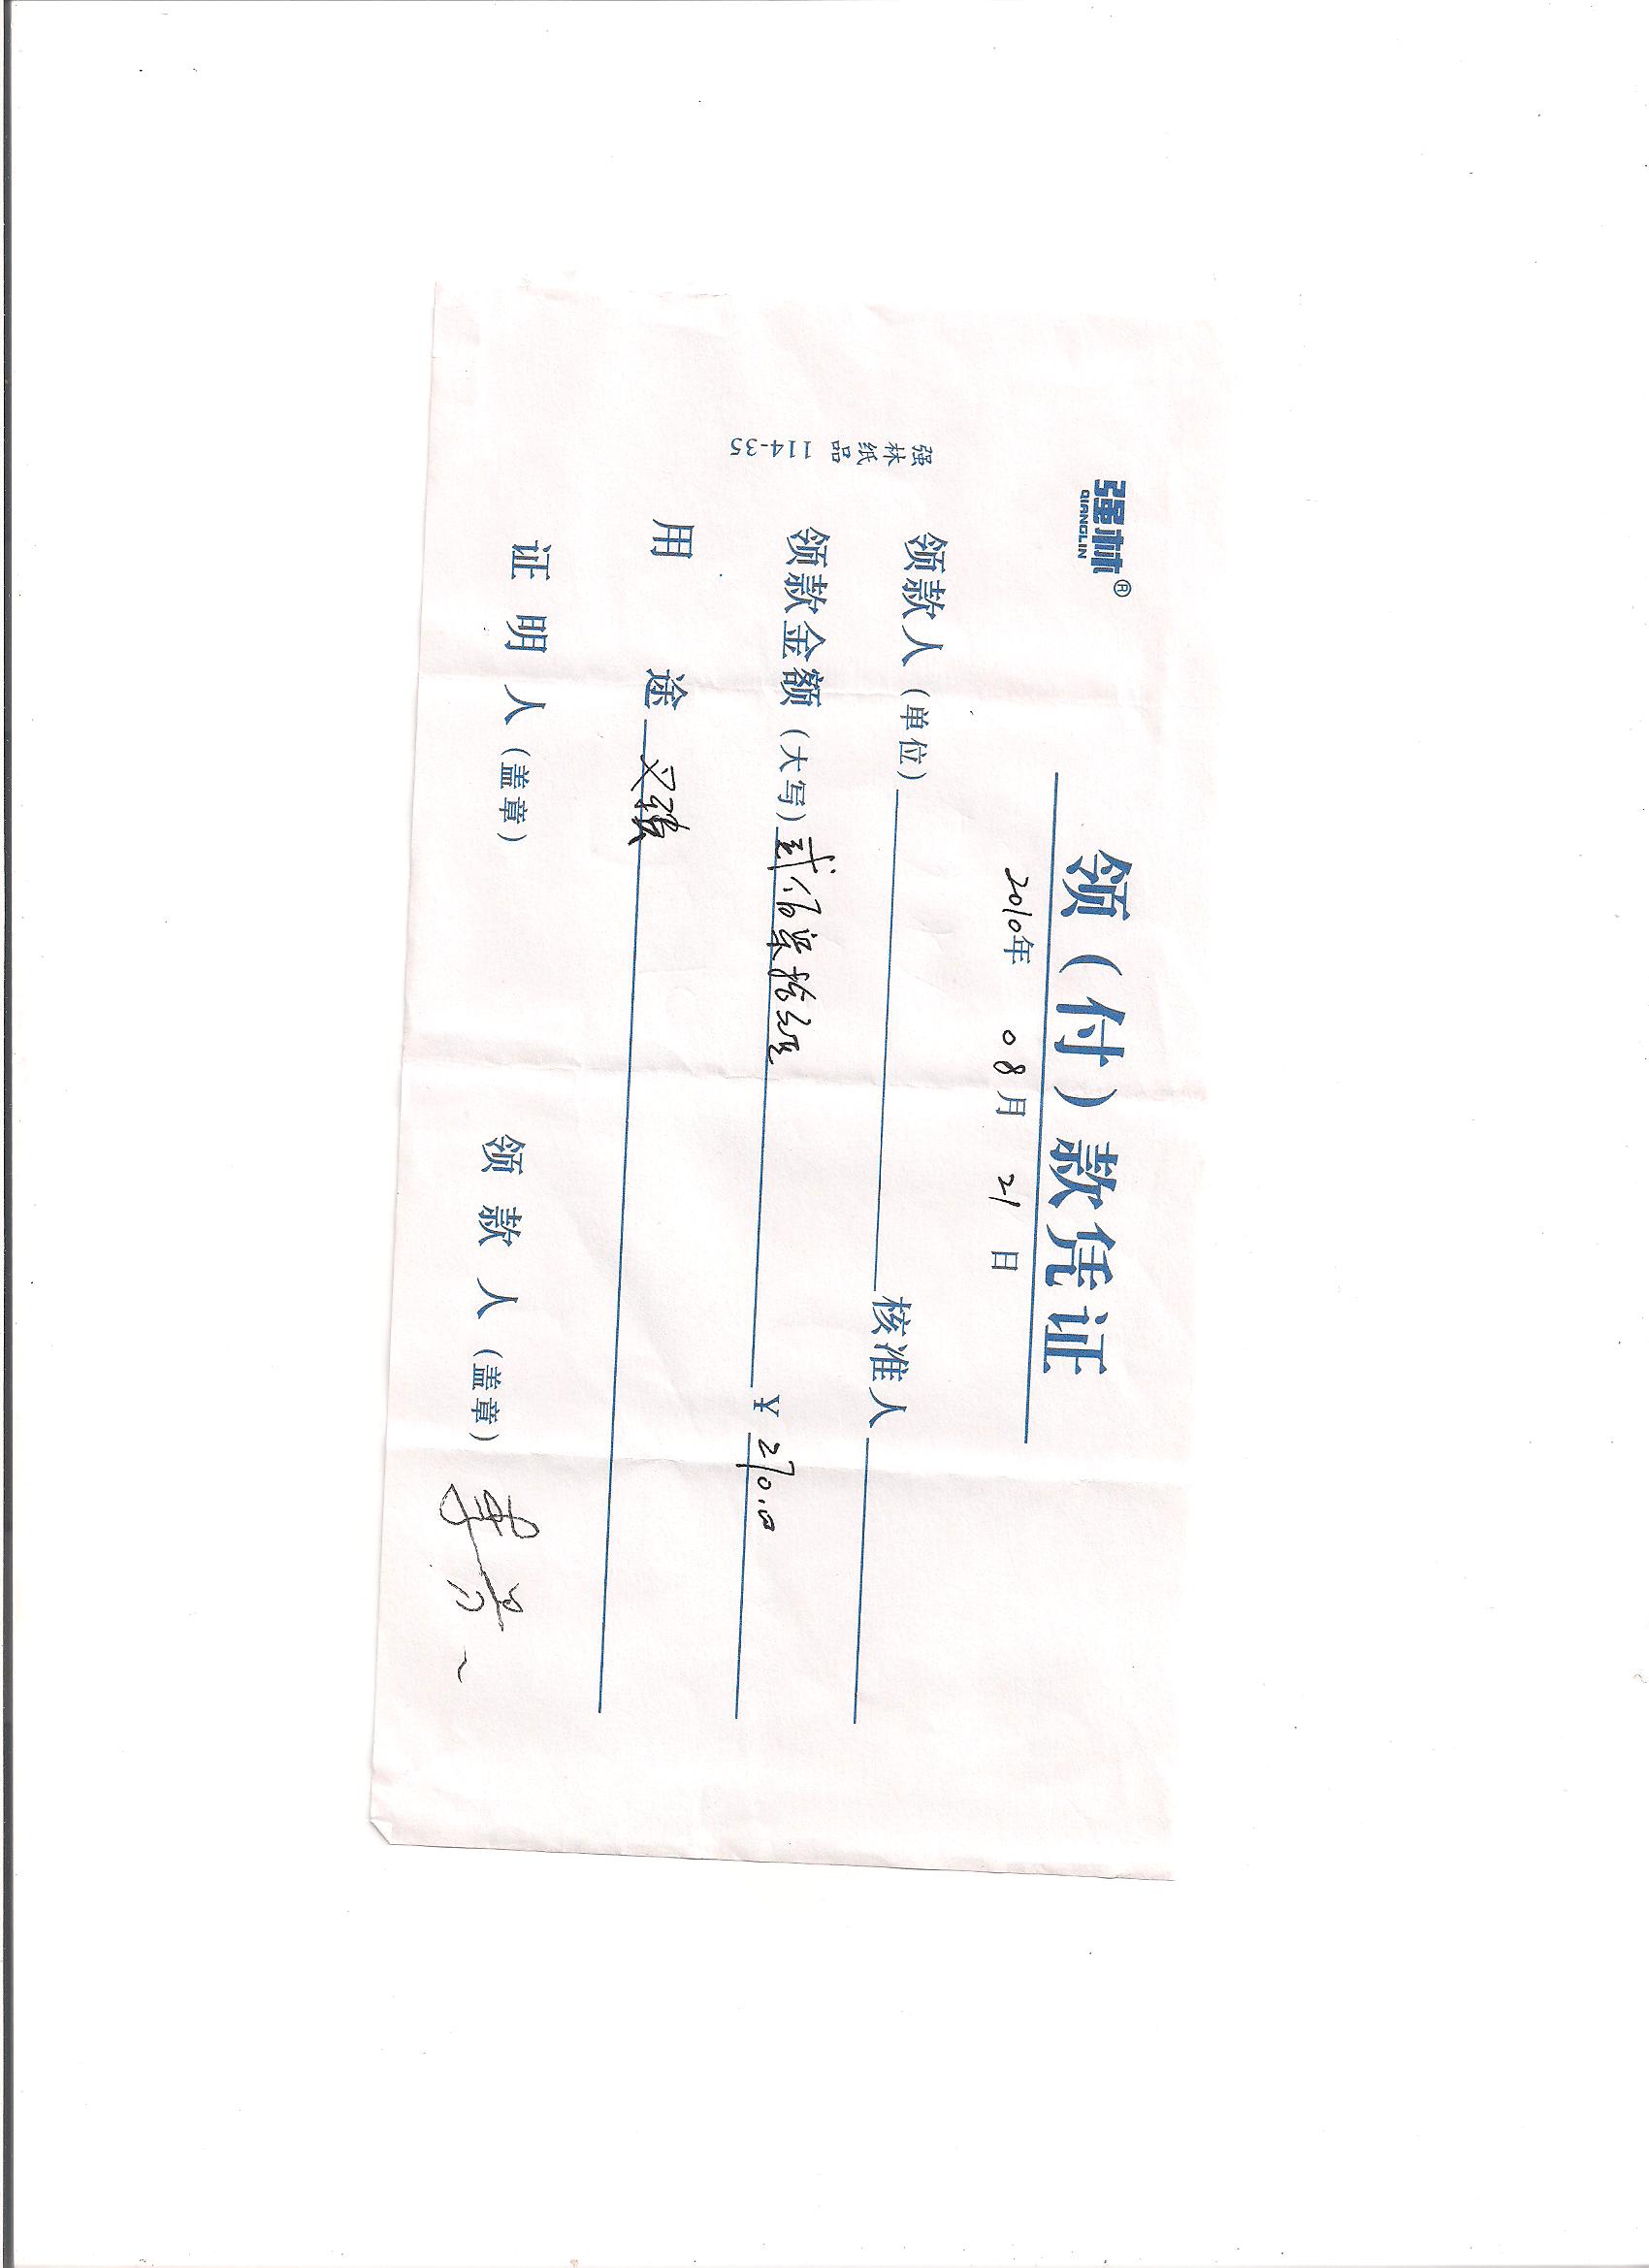 强林®
QIANGLIN
领（付）款凭证
2010年 08月 21日
领款人（单位） 核准人
领款金额（大写）贰佰柒拾元正 ¥ 270.00
用途
证明人（盖章） 领款人（盖章）
强林纸品 114-35